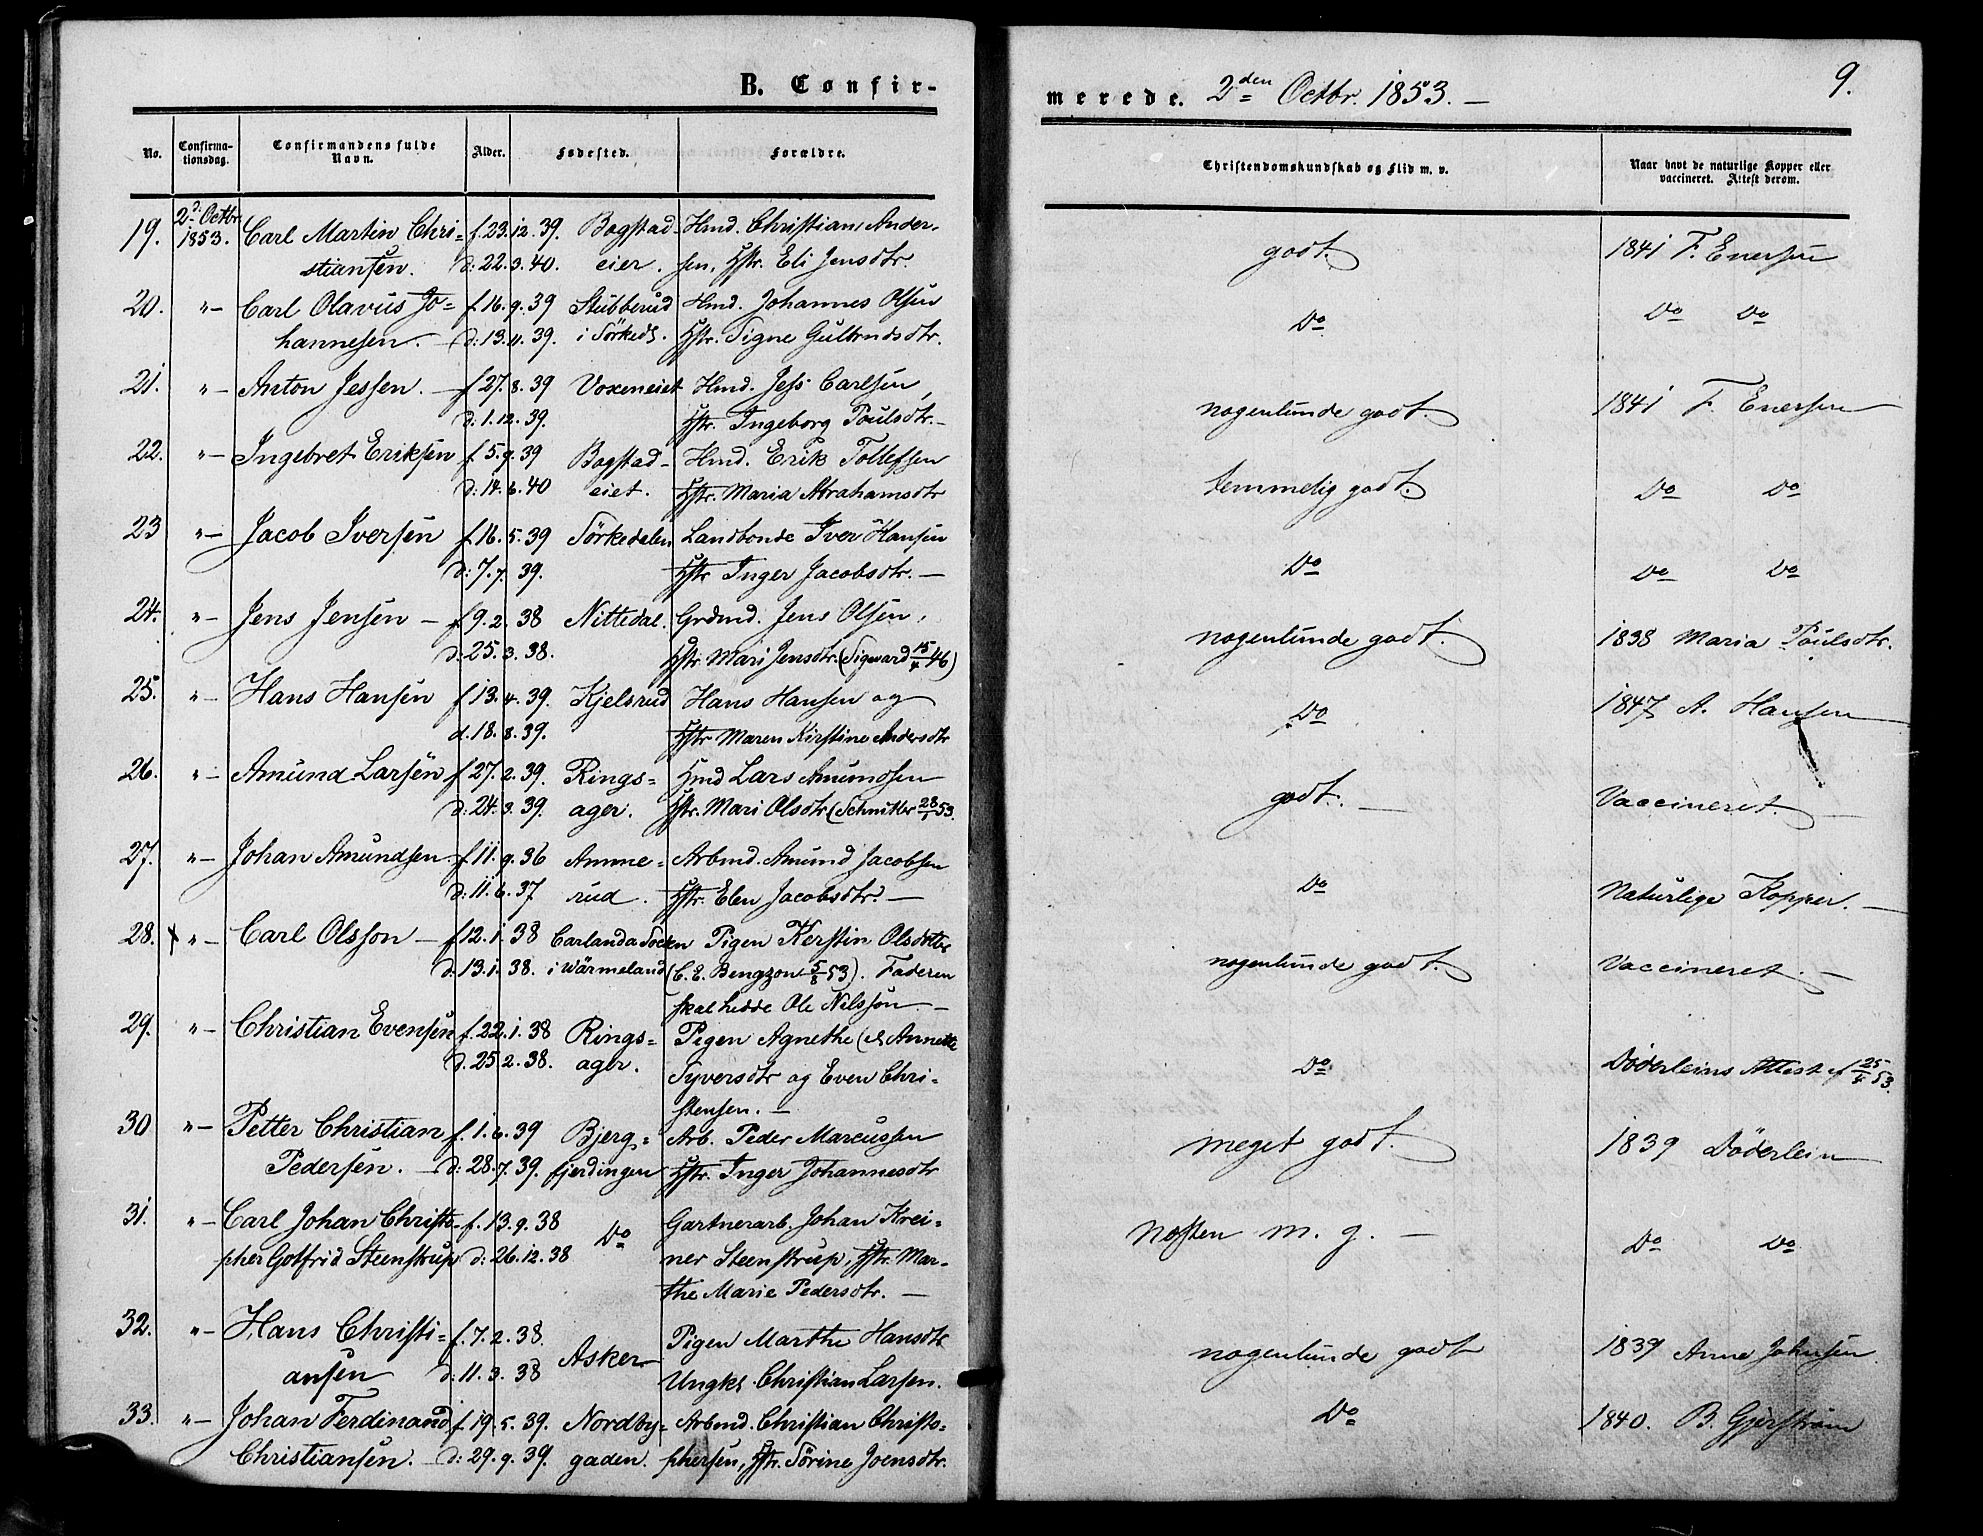 B. Confir-
merede. 2den Octbr. 1853. —
9.
No. Confirma-tionsdag. Confirmandens fulde Navn. Alder. Fødested. Forældre. Christendomskundskab og Flid m. v. Naar havt de naturlige Kopper eller vaccineret. Attest derom.
19. 2d. Octbr. 1853. Carl Martin Chri= f. 23.12.39. Bogstad- Hmd. Christian Ander- godt. 1841 F. Enersen
stiansen. d: 22.3.40. eier. sen, Hstr. Eli Jensdtr.
20. "— Carl Olavus Jo= f. 16.9.39 Stubberud Hmd. Johannes Olsen Do Do Do
hannesen. — d: 13.11.39. i Sörkeds. Hstr. Signe Gulbrndsdtr.
21. "— Anton Jessen. — f 27.8.39 Voxeneiet Hmd. Jess Carlsen, nogenlunde godt. 1841 F. Enersen
d: 1.12.39. Hstr. Ingeborg Poulsdtr. —
22. "— Ingebret Eriksen f. 5.9.39 Bogstad- Hmd. Erik Tollefsen temmelig godt. Do Do
d: 14.6.40 eiet. Hstr. Maria Abrahamsdtr
23 "— Jacob Iversen f. 16.5.39 Sörkedalen Landbonde Iver Hansen Do Do Do
d: 7.7.39. Hstr Inger Jacobsdtr. —
24. "— Jens Jensen — f 9.2.38 Nittedal. Grdmd. Jens Olsen, nogenlunde godt. 1838 Maria Poulsdtr.
d: 25.3.38. Hstr. Mari Jensdtr. (Sigward 15/4 46)
25. "— Hans Hansen f 13.4.39. Kjelsrud Hans Hansen og Do 1847 A. Hansen
d. 18.8.39. Hstr Maren Kirstine Andersdtr
26. "— Amund Larsen f 27.2.39. Rings= Hmd Lars Amundsen godt. — Vaccineret. —
d: 24.3.39. ager. Hstr. Mari Olsdtr (Schnitler 28/1 53.
27. "— Johan Amundsen f 11.9.36 Amme= Arbmd. Amund Jacobsen Do Naturlige Kopper. —
d: 11.6.37 rud. Hstr. Elen Jacobsdtr. —
28. x "— Carl Olsson — f 12.1.38 Carlanda Socken Pigen Kerstin Olsdtter nogenlunde godt. Vaccineret. —
d: 13.1.38. i Wärmeland (C. E. Bengzon 5/8 53). Faderen
skal hedde Ole Nilsson. —
29. "— Christian Evensen f. 22.1.38 Rings= Pigen Agnethe (el Annette Do Döderleins Attest af 25/4 53.
d: 25.2.38. ager. Syversdtr og Even Chri-
stensen. —
30 "— Petter Christian f. 1.6.39 Bjerg= Arb. Peder Marcussen meget godt. 1839 Döderlein
Pedersen. — d: 28.7.39. fjerdingen Hstr. Inger Johannesdtr
31. "— Carl Johan Christo- f. 13.9.38 Do Gartnerarb. Johan Krei= næsten m. g. — Do Do
pher Gotfrid Steenstrup d: 26.12.38 ner Steenstrup, Hstr. Mar-
the Marie Pedersdtr. —
32. "— Hans Christi= f. 7.2.38. Asker — Pigen Marthe Hansdtr nogenlunde godt 1839 Anne Johnsen
ansen d: 11.3.38 Ungk. Christian Larsen.
33. "— Johan Ferdinand f. 19.5.39. Nordby= Arbmd. Christian Christo- Do 1840. B. Gjerström
Christiansen. — d: 29.9.39. gaden. phersen, Hstr. Sörine Joensdtr.